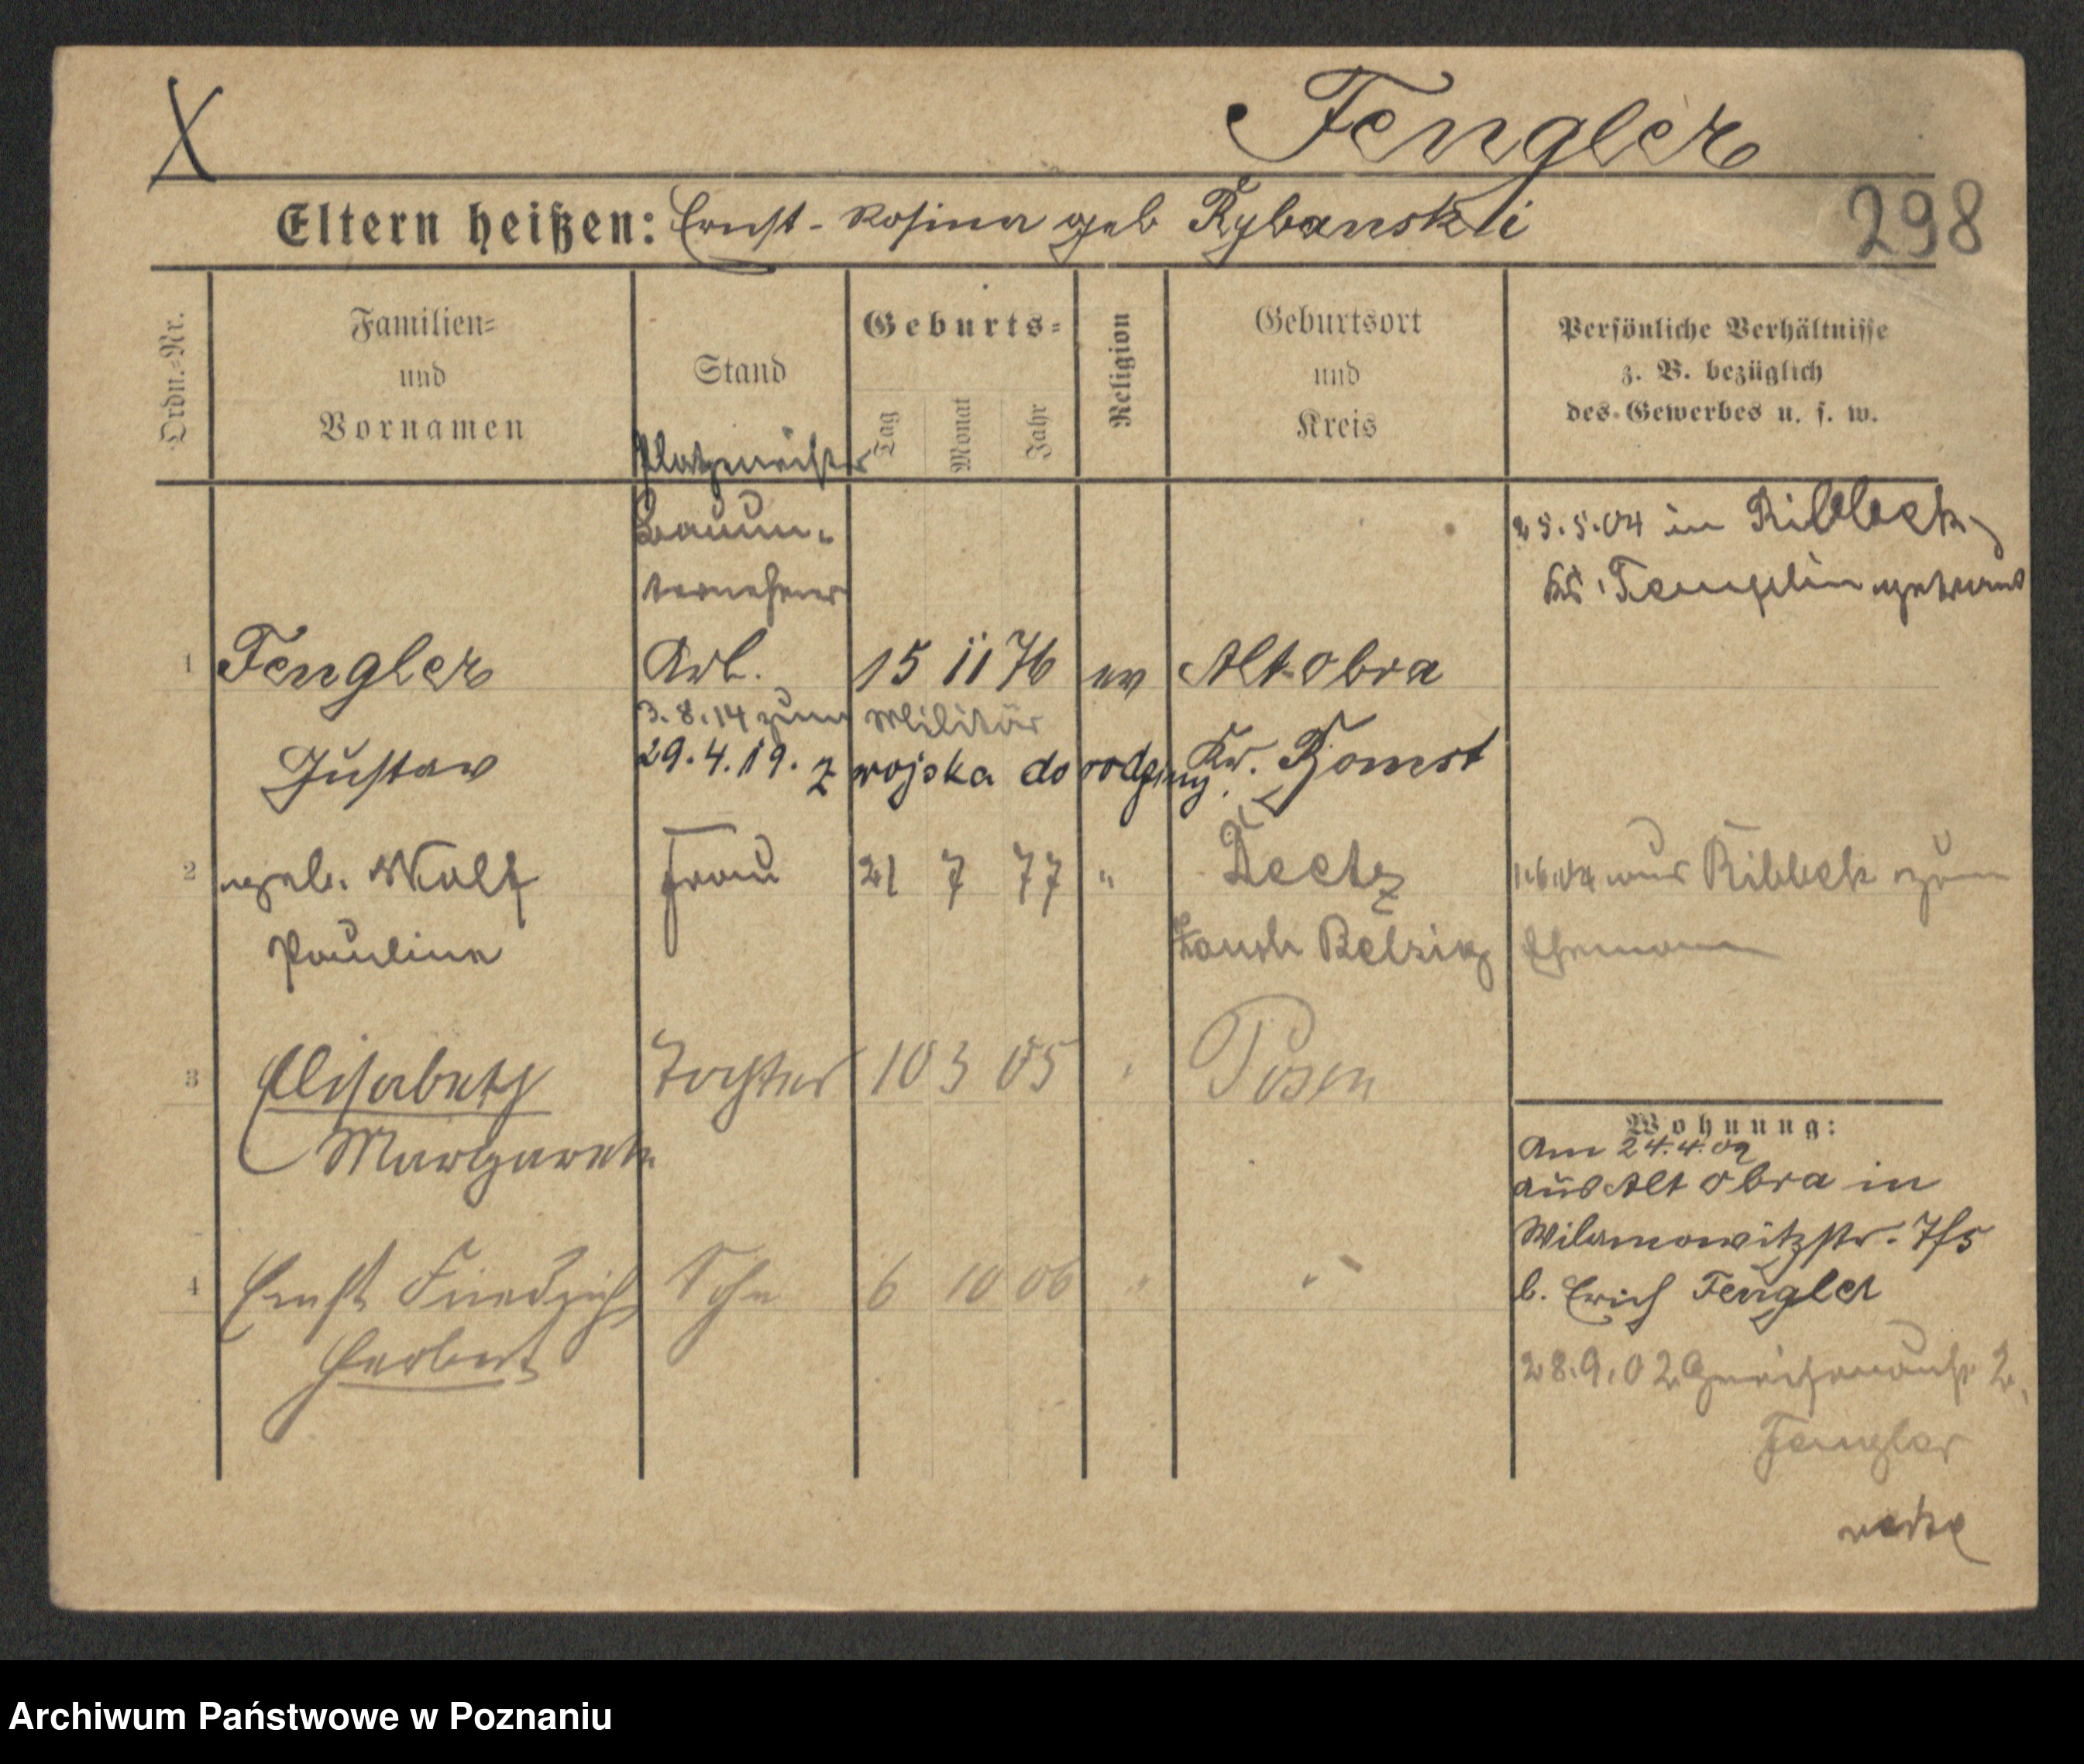 X
Fengler
298
Eltern heißen: Ernst - Rosina geb Rybanski
Ordn.-Nr.
Familien-
und
Vornamen
Stand
Geburts-
Tag
Monat
Jahr
Religion
Geburtsort
und
Kreis
Persönliche Verhältnisse
z. B. bezüglich
des Gewerbes u. s. w.
Platzmeister
Bauun-
ternehmer
25.5.04 in Ribbeck
Kr. Templin getraut
1 Fengler Arb. 15 11 76 ev Alt-Obra
3.8.14 zum Militär
Gustav
29.4.19. z wojska do rodziny.
Kr. Bomst
2 geb. Wolf Frau 21 7 77 " Deetz
1.6.04 aus Ribbeck zum
Pauline
Zauch Belzig
Ehemann
3 Elisabeth Tochter 10 3 05 " Posen
Margarete
4 Ernst Friedrich Sohn 6 10 06 " "
Herbert
Wohnung:
Am 24.4.02
aus Alt Obra in
Wilamowitzstr. 7/5
b. Erich Fengler
28.9.02 2.
Fengler